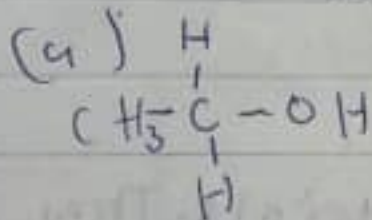 (a) H
CH₃-C-OH
H